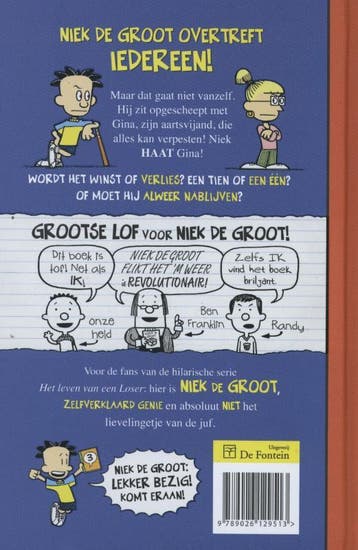 NIEK DE GROOT OVERTREFT
IEDEREEN!
Maar dat gaat niet vanzelf.
Hij zit opgescheept met
Gina, zijn aartsvijand, die
alles kan verpesten! Niek
HAAT Gina!
WORDT HET WINST OF VERLIES? EEN TIEN OF EEN ÉÉN?
OF MOET HIJ ALWEER NABLIJVEN?
GROOTSE LOF VOOR NIEK DE GROOT!
Dit boek is
top! Net als
IK!
onze
held
NIEK DE GROOT
FLIKT HET 'M WEER
& REVOLUTIONAIR!
Ben
Franklin
Zelfs IK
vind het boek
briljant.
Randy
Voor de fans van de hilarische serie
Het leven van een Loser: hier is NIEK DE GROOT,
ZELFVERKLAARD GENIE en absoluut NIET het
lievelingetje van de juf.
3
NIEK DE GROOT:
LEKKER BEZIG!
KOMT ERAAN!
Uitgeverij
De Fontein
9 789026 129513 >